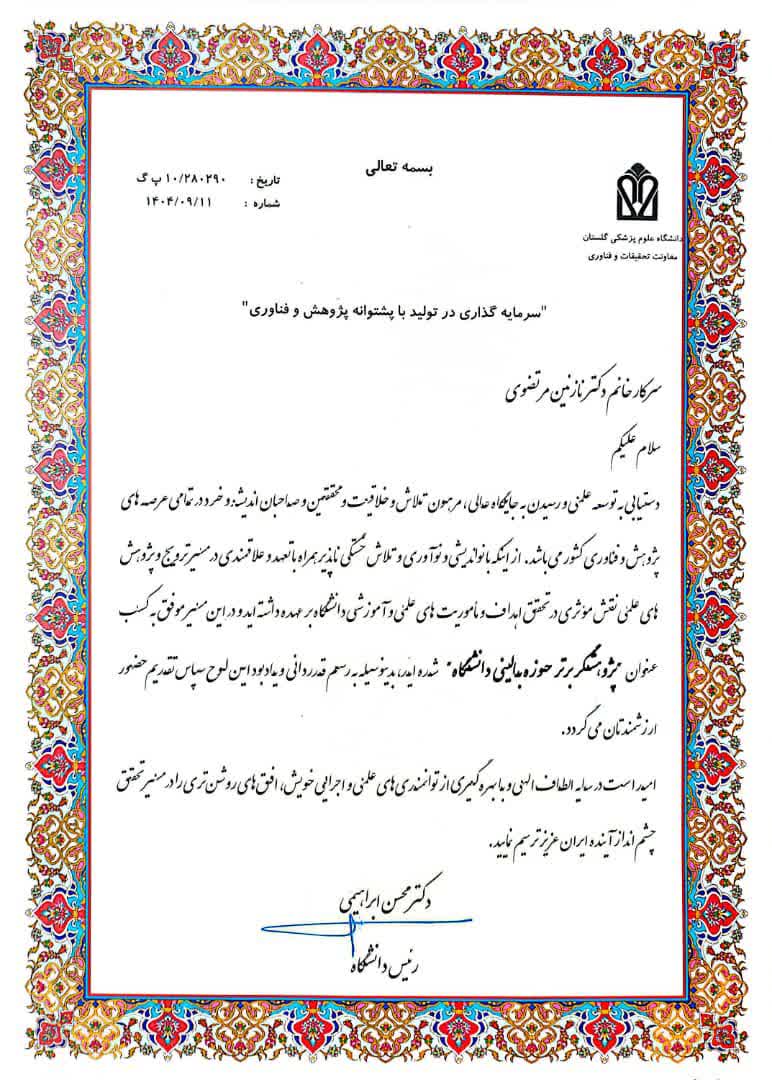 بسمه تعالی
تاریخ : ۱۰/۲۸۰۲۹۰ پ گ
شماره : ۱۴۰۴/۰۹/۱۱
دانشگاه علوم پزشکی گلستان
معاونت تحقیقات و فناوری
"سرمایه گذاری در تولید با پشتوانه پژوهش و فناوری"
سرکار خانم دکتر نازنین مرتضوی
سلام علیکم
دستیابی به توسعه علمی و رسیدن به جایگاه عالی، مرهون تلاش و خلاقیت و محققین و صاحبان اندیشه و خرد در تمامی عرصه های
پژوهش و فناوری کشور می باشد. از اینکه با نواندیشی و نوآوری و تلاش خستگی ناپذیر همراه با تعهد و علاقمندی در مسیر ترویج و پژوهش
های علمی نقش مؤثری در تحقق اهداف و ماموریت های علمی و آموزشی دانشگاه بر عهده داشته اید و در این مسیر موفق به کسب
عنوان "پژوهشگر برتر حوزه بالینی دانشگاه" شده اید، بدینوسیله به رسم قدردانی و یادبود این لوح سپاس تقدیم حضور
ارزشمندتان می گردد.
امید است در سایه الطاف الهی و با بهره گیری از توانمندی های علمی و اجرایی خویش، افق های روشن تری را در مسیر تحقق
چشم انداز آینده ایران عزیز ترسیم نمایید.
دکتر محسن ابراهیمی
رئیس دانشگاه